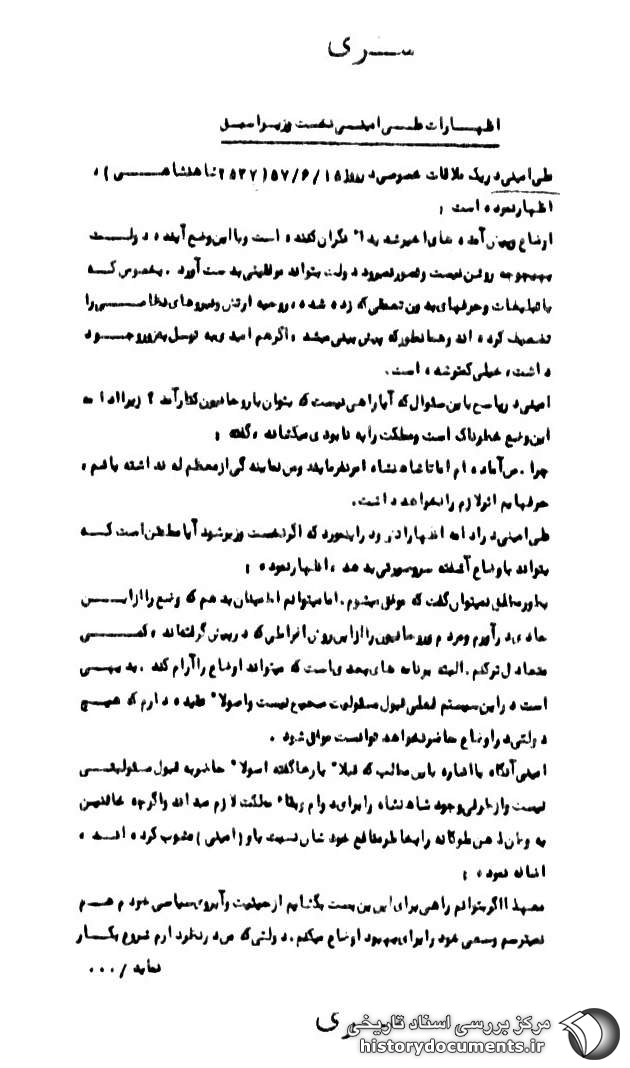 سری
اظهارات علی امینی نخست وزیر اسبق
علی امینی در یک ملاقات خصوصی در روز ۵۷/۶/۱۵ (۲۵۳۷ شاهنشاهی)،
اظهار نموده است :
اوضاع و پیش آمد های اخیر شدیداً نگران کننده است و با این وضع آینده دولت
بهیچوجه روشن نیست و تصور نمیرود دولت بتواند موفقیتی بدست آورد. بخصوص که
با تبلیغات و حرفهای بدون تعمقی که زده شده، روحیه ارتش و نیروهای نظامی را
تضعیف کرده اند و همانطور که پیش بینی میشد، اگر هم امیدی به توسل بزور وجود
داشت، خیلی کمتر شده است.
امینی در پاسخ باین سئوال که آیا راهی نیست که بتوان با روحانیون کنار آمد ؟ زیرا ادامه
این وضع خطرناک است و مملکت را به نابودی میکشاند، گفته :
چرا. من آماده ام اما تا شاهنشاه امر نفرمایند و من نمایندگی از معظم له نداشته باشم،
حرفهایم اثر لازم را نخواهد داشت.
علی امینی در ادامه اظهاراتش و در اینمورد که اگر نخست وزیر شود آیا مطمئن است که
بتواند باوضاع آشفته سر و صورتی بدهد، اظهار نموده :
بطور مطلق نمیتوان گفت که موفق میشوم. اما میتوانم اطمینان بدهم که وضع را از این
حادی درآورم و مردم و روحانیون را از این روش افراطی که در پیش گرفته اند، کمی
متعادل تر کنم. البته برنامه های بعدی است که میتواند اوضاع را آرام کند. بدیهی
است در این سیستم فعلی قبول مسئولیت صحیح نیست و اصولاً عقیده دارم که هیچ
دولتی در اوضاع حاضر نخواهد توانست موفق شود .
امینی آنگاه با اشاره باین مطالب که قبلاً بارها گفته اصولاً حاضر به قبول مسئولیتی
نیست و از طرفی وجود شاهنشاه را برای دوام و بقاء مملکت لازم میداند و اگرچه خائنین
به وطن ذهن ملوکانه را بخاطر منافع خودشان نسبت باو (امینی) مشوب کرده اند،
اضافه نموده :
معهذا اگر بتوانم راهی برای این بن بست بگشایم از حیثیت و آبروی سیاسی خودم هم
نمیترسم و سعی خود را برای بهبود اوضاع میکنم. دولتی که من در نظر دارم شروع بکار
نماید /...
سری
مرکز بررسی اسناد تاریخی
historydocuments.ir